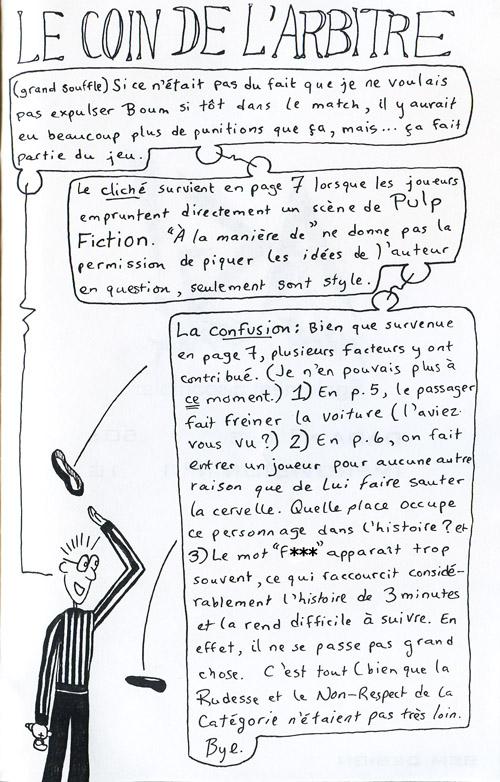 LE COIN DE L'ARBITRE
(grand souffle) Si ce n'était pas du fait que je ne voulais
pas expulser Boum si tôt dans le match, il y aurait
eu beaucoup plus de punitions que ça, mais... ça fait
partie du jeu.
Le cliché survient en page 7 lorsque les joueurs
empruntent directement un scène de Pulp
Fiction. "À la manière de" ne donne pas la
permission de piquer les idées de l'auteur
en question, seulement sont style.
La confusion: Bien que survenue
en page 7, plusieurs facteurs y ont
contribué. (Je n'en pouvais plus à
ce moment.) 1) En p.5, le passager
fait freiner la voiture (l'aviez-
vous vu?) 2) En p.6, on fait
entrer un joueur pour aucune autre
raison que de lui faire sauter
la cervelle. Quelle place occupe
ce personnage dans l'histoire? et
3) Le mot "f***" apparaît trop
souvent, ce qui raccourcit considé-
rablement l'histoire de 3 minutes
et la rend difficile à suivre. En
effet, il ne se passe pas grand
chose. C'est tout (bien que la
Rudesse et le Non-Respect de la
Catégorie n'étaient pas très loin.
Bye.